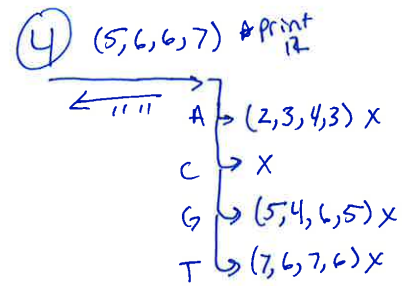 4 (5,6,6,7) * print
12
" "
A (2,3,4,3) X
C X
G (5,4,6,5) X
T (7,6,7,6) X